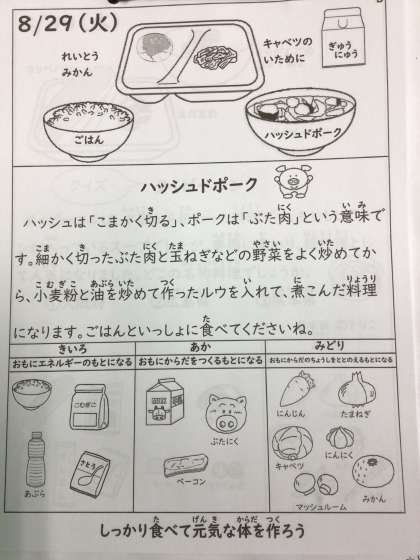 8/29(火)
れいとう
みかん
キャベツの
いために
ぎゅう
にゅう
ごはん
ハッシュドポーク
ハッシュドポーク
ハッシュは「こまかく切る」、ポークは「ぶた肉」という意味で
す。細かく切ったぶた肉と玉ねぎなどの野菜をよく炒めてか
ら、小麦粉と油を炒めて作ったルウを入れて、煮こんだ料理
になります。ごはんといっしょに食べてくださいね。
きいろ
あか
みどり
おもにエネルギーのもとになる
おもにからだをつくるもとになる
おもにからだのちょうしをととのえるもとになる
こむぎこ
ぶたにく
にんじん
たまねぎ
あぶら
さとう
ベーコン
キャベツ
にんにく
マッシュルーム
みかん
しっかり食べて元気な体を作ろう